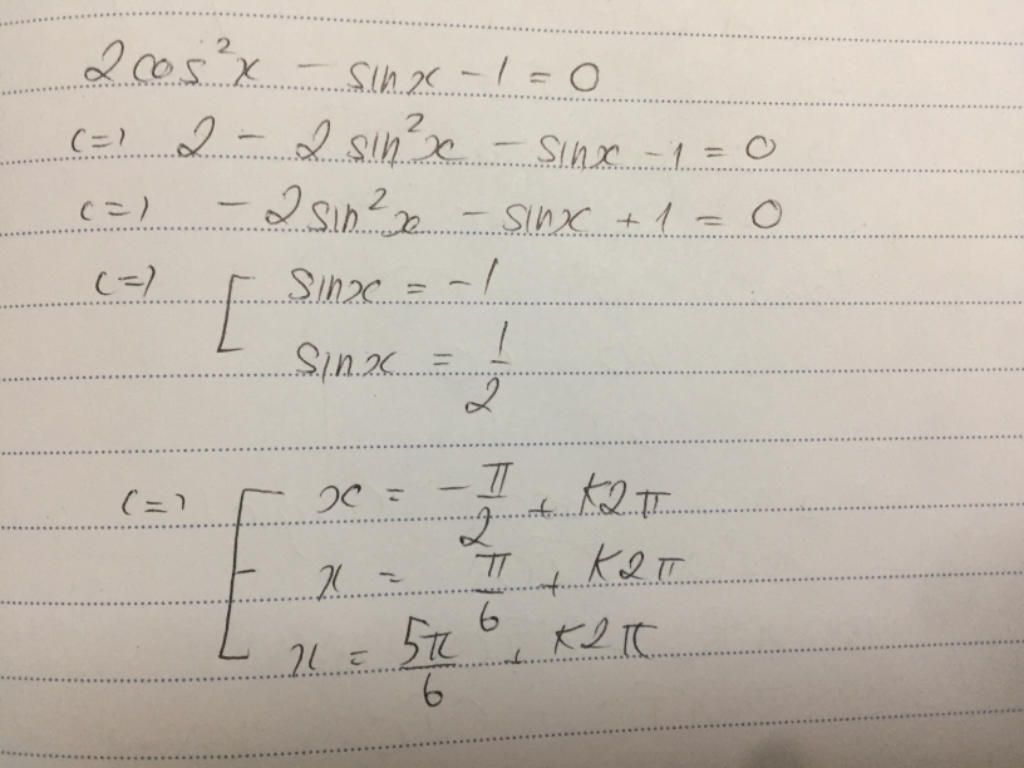 2cos²x - sinx - 1 = 0
<=> 2 - 2sin²x - sinx - 1 = 0
<=> - 2sin²x - sinx + 1 = 0
<=> [ sinx = -1
sinx = 1/2
<=> [ x = -π/2 + K2π
x = π/6 + K2π
x = 5π/6 + K2π